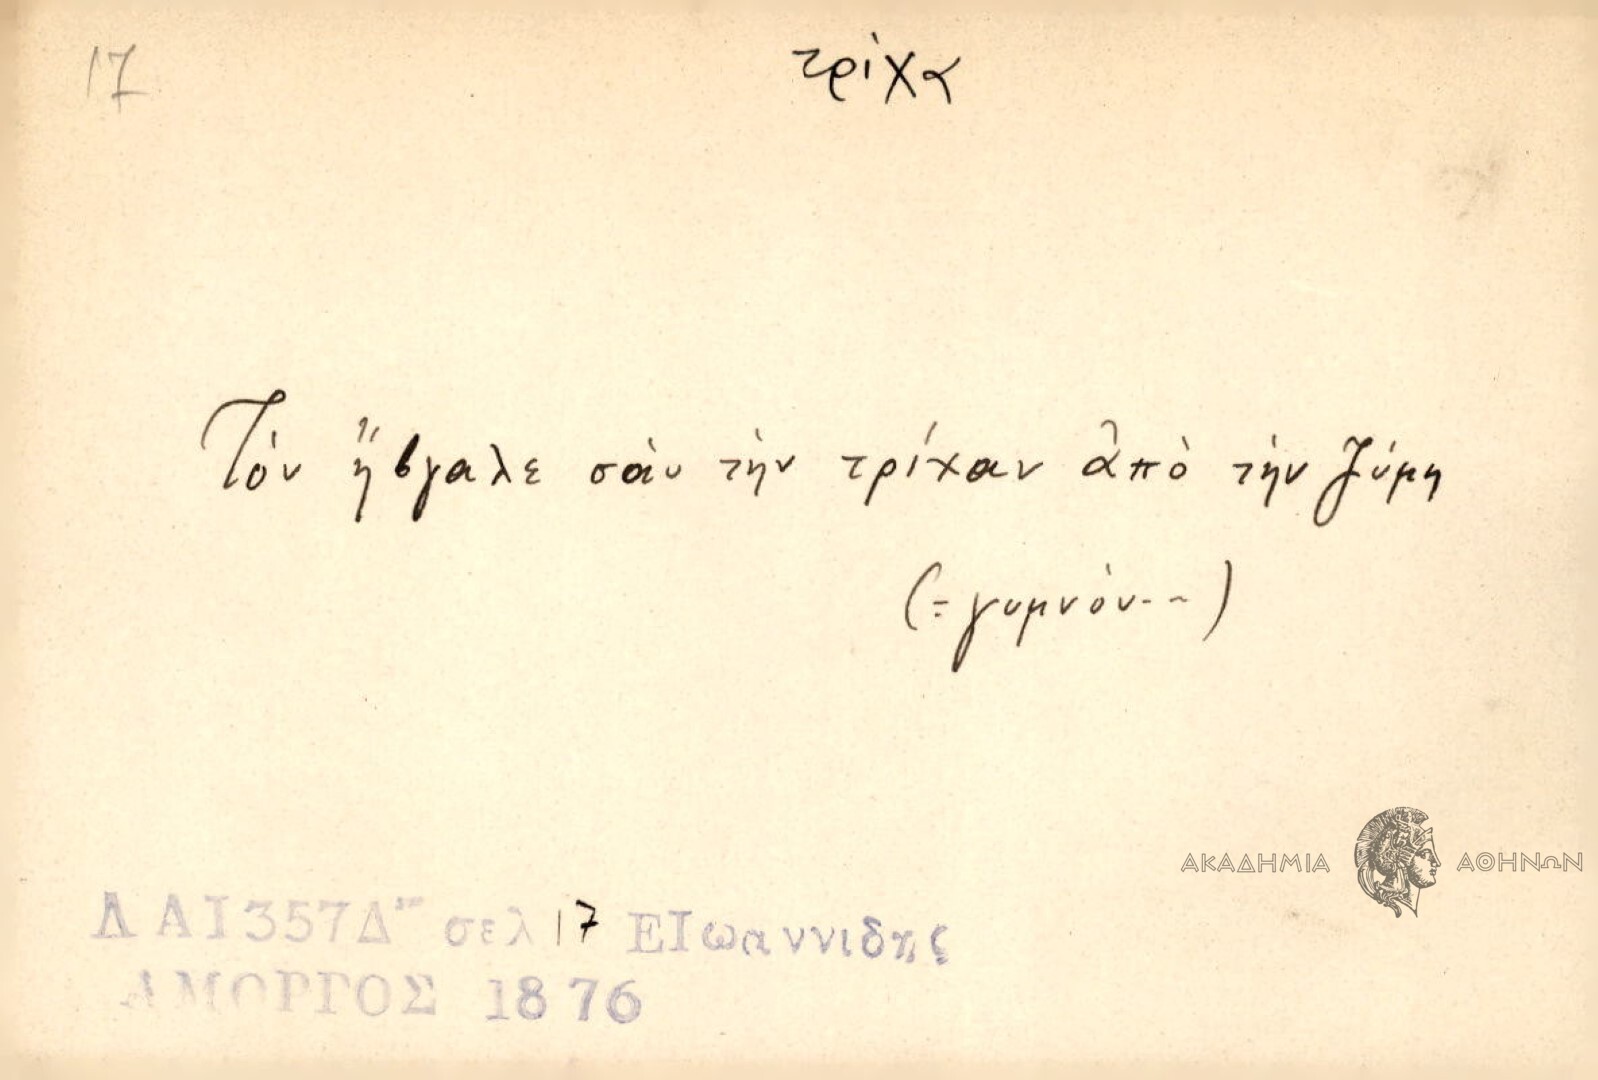 17
τρίχα
Τὸν ἤβγαλε σὰν τὴν τρίχαν ἀπὸ τὴν ζύμη
(= γυμνὸν--)
ΑΚΑΔΗΜΙΑ ΑΘΗΝΩΝ
Λ Α Ι 357Δ"" σελ 17 ΕΙωαννιδης
ΑΜΟΡΓΟΣ 1876